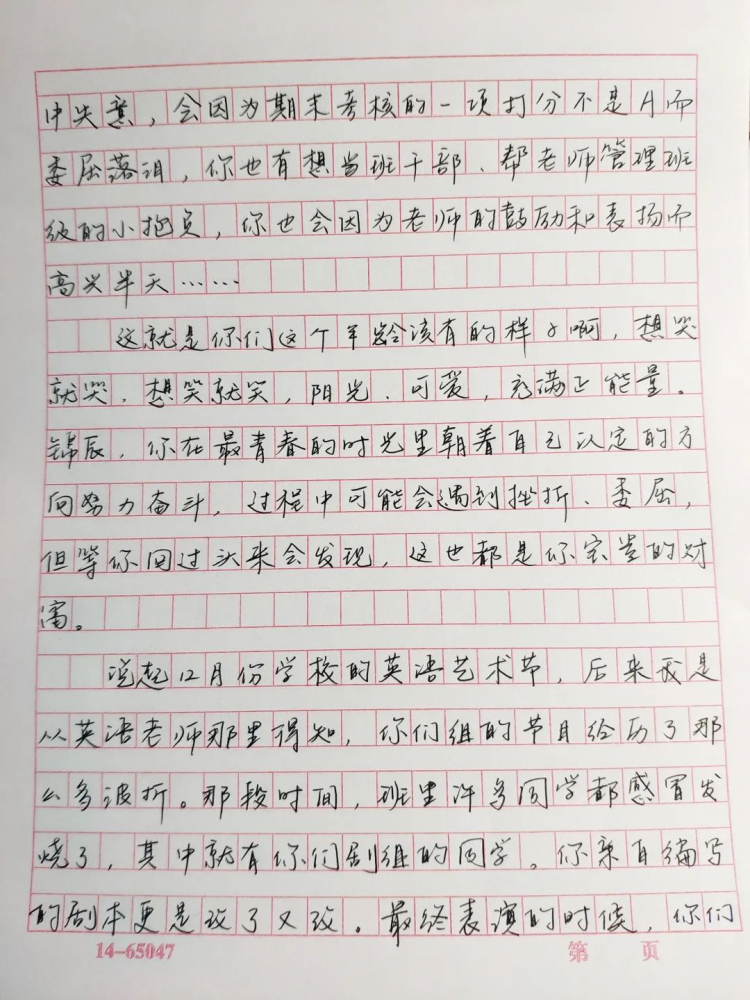 中失意，会因为期末考核的一项打分不是A而
委屈落泪，你也有想当班干部、帮老师管理班
级的小抱负，你也会因为老师的鼓励和表扬而
高兴半天……
这就是你们这个年龄该有的样子啊，想哭
就哭，想笑就笑，阳光、可爱，充满正能量。
锦辰，你在最青春的时光里朝着自己认定的方
向努力奋斗，过程中可能会遇到挫折、委屈，
但等你回过头来会发现，这也都是你宝贵的财
富。
说起12月份学校的英语艺术节，后来我是
从英语老师那里得知，你们组的节目经历了那
么多波折。那段时间，班里许多同学都感冒发
烧了，其中就有你们剧组的同学。你亲自编写
的剧本更是改了又改。最终表演的时候，你们
14-65047
第 页